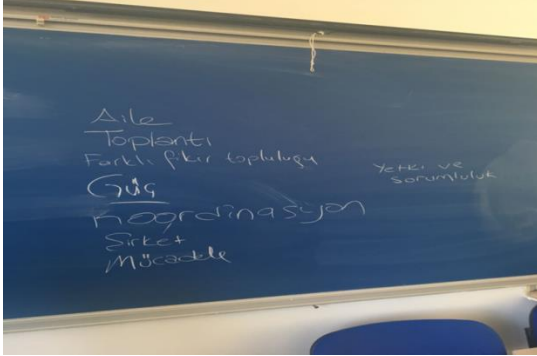 Aile
Toplantı
Farklı fikir topluluğu
Güç
Koordinasyon
Şirket
Mücadele
Yetki ve
sorumluluk